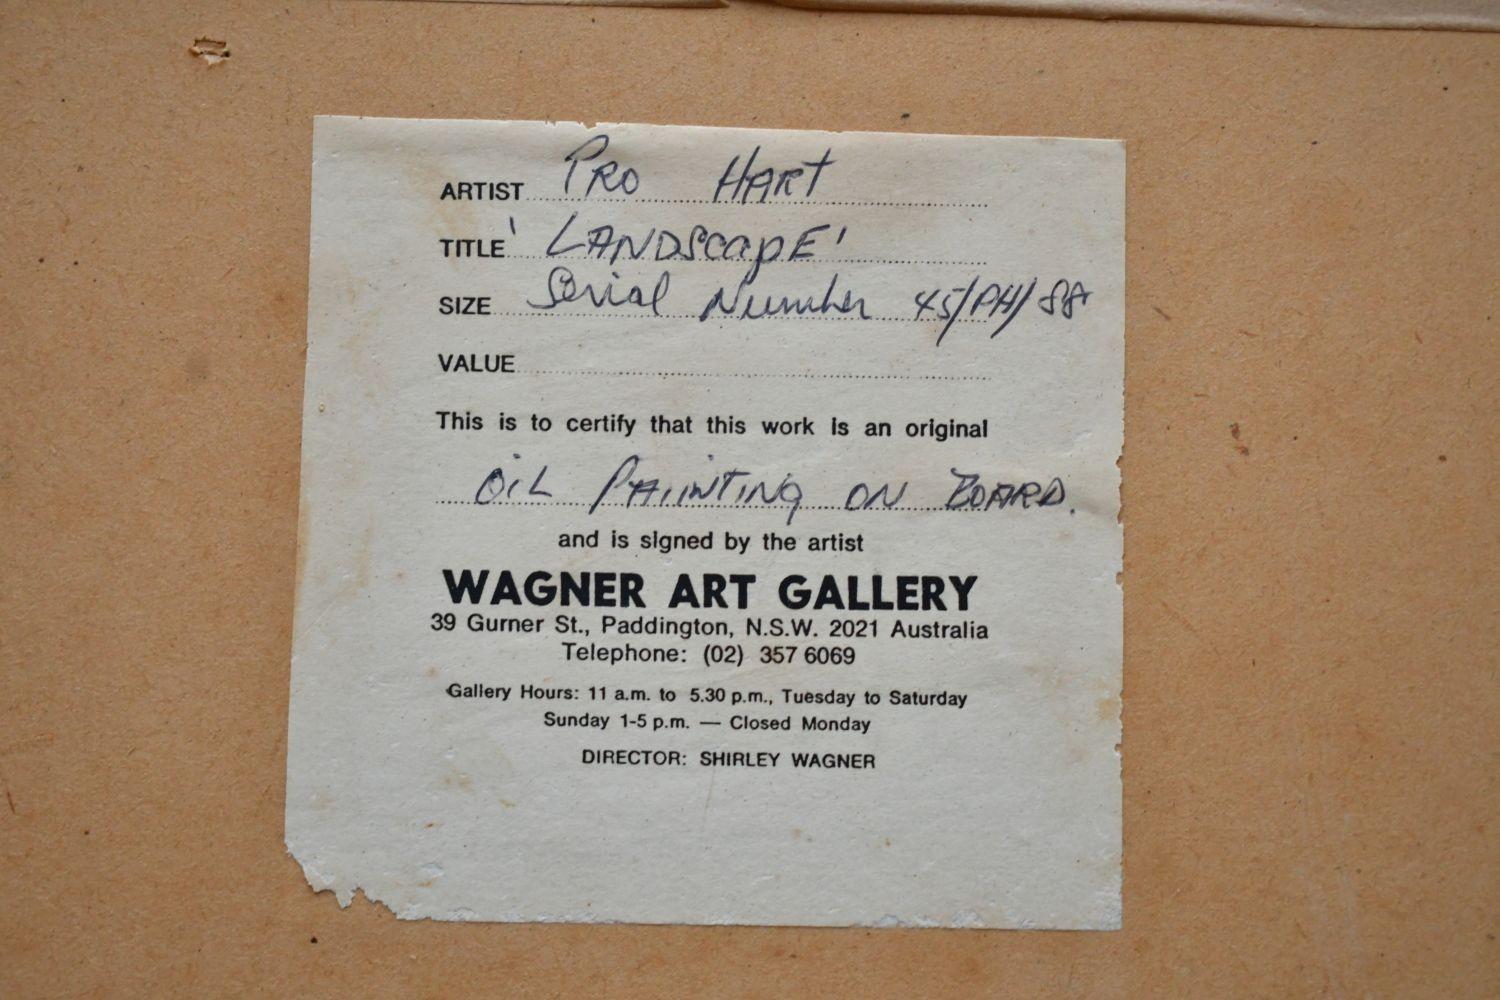 ARTIST PRO HART
TITLE 'LANDSCAPE'
SIZE Serial Number 45/PH/88
VALUE
This is to certify that this work is an original
OIL PAIINTING ON BOARD.
and is signed by the artist
WAGNER ART GALLERY
39 Gurner St., Paddington, N.S.W. 2021 Australia
Telephone: (02) 357 6069
Gallery Hours: 11 a.m. to 5.30 p.m., Tuesday to Saturday
Sunday 1-5 p.m. — Closed Monday
DIRECTOR: SHIRLEY WAGNER